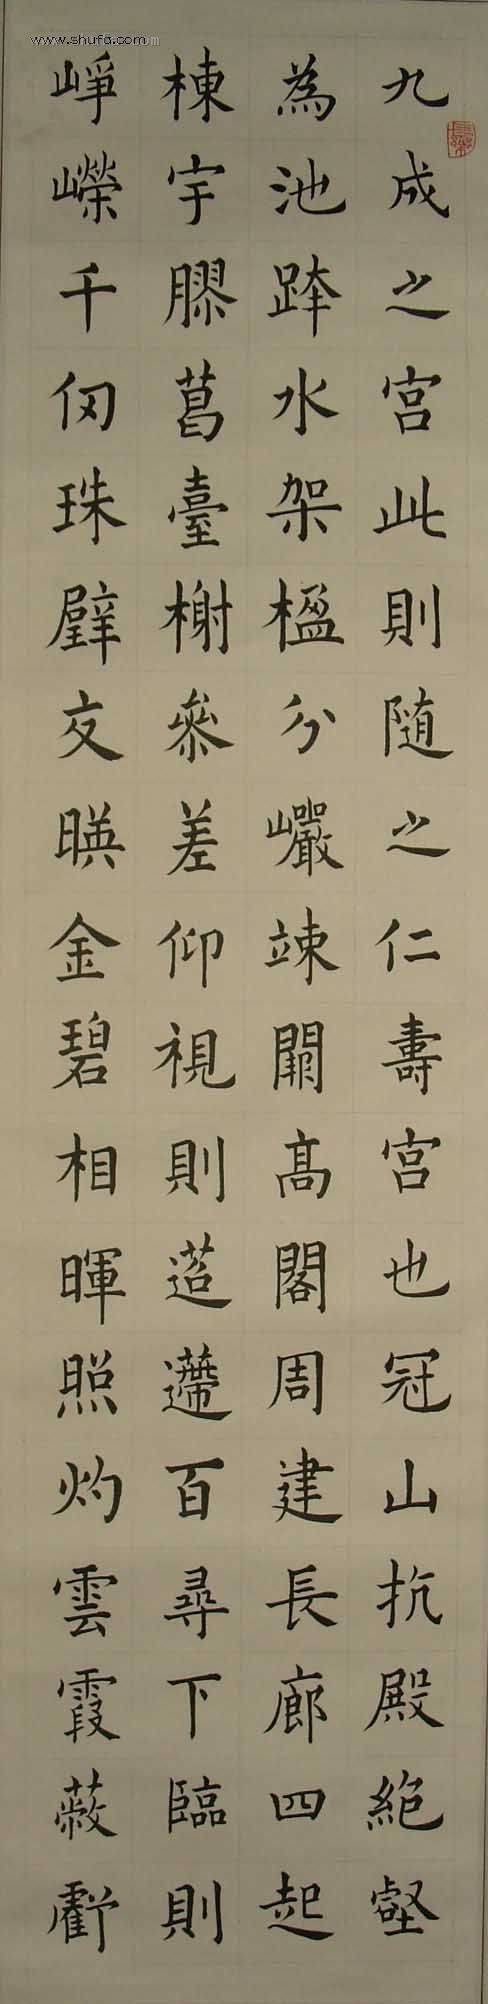 www.shufa.com
九成之宮此則隨之仁壽宮也冠山抗殿絕壑
為池跨水架楹分巖竦闕高閣周建長廊四起
棟宇膠葛臺榭參差仰視則迢遰百尋下臨則
崢嶸千仞珠璧交暎金碧相暉照灼雲霞蔽虧